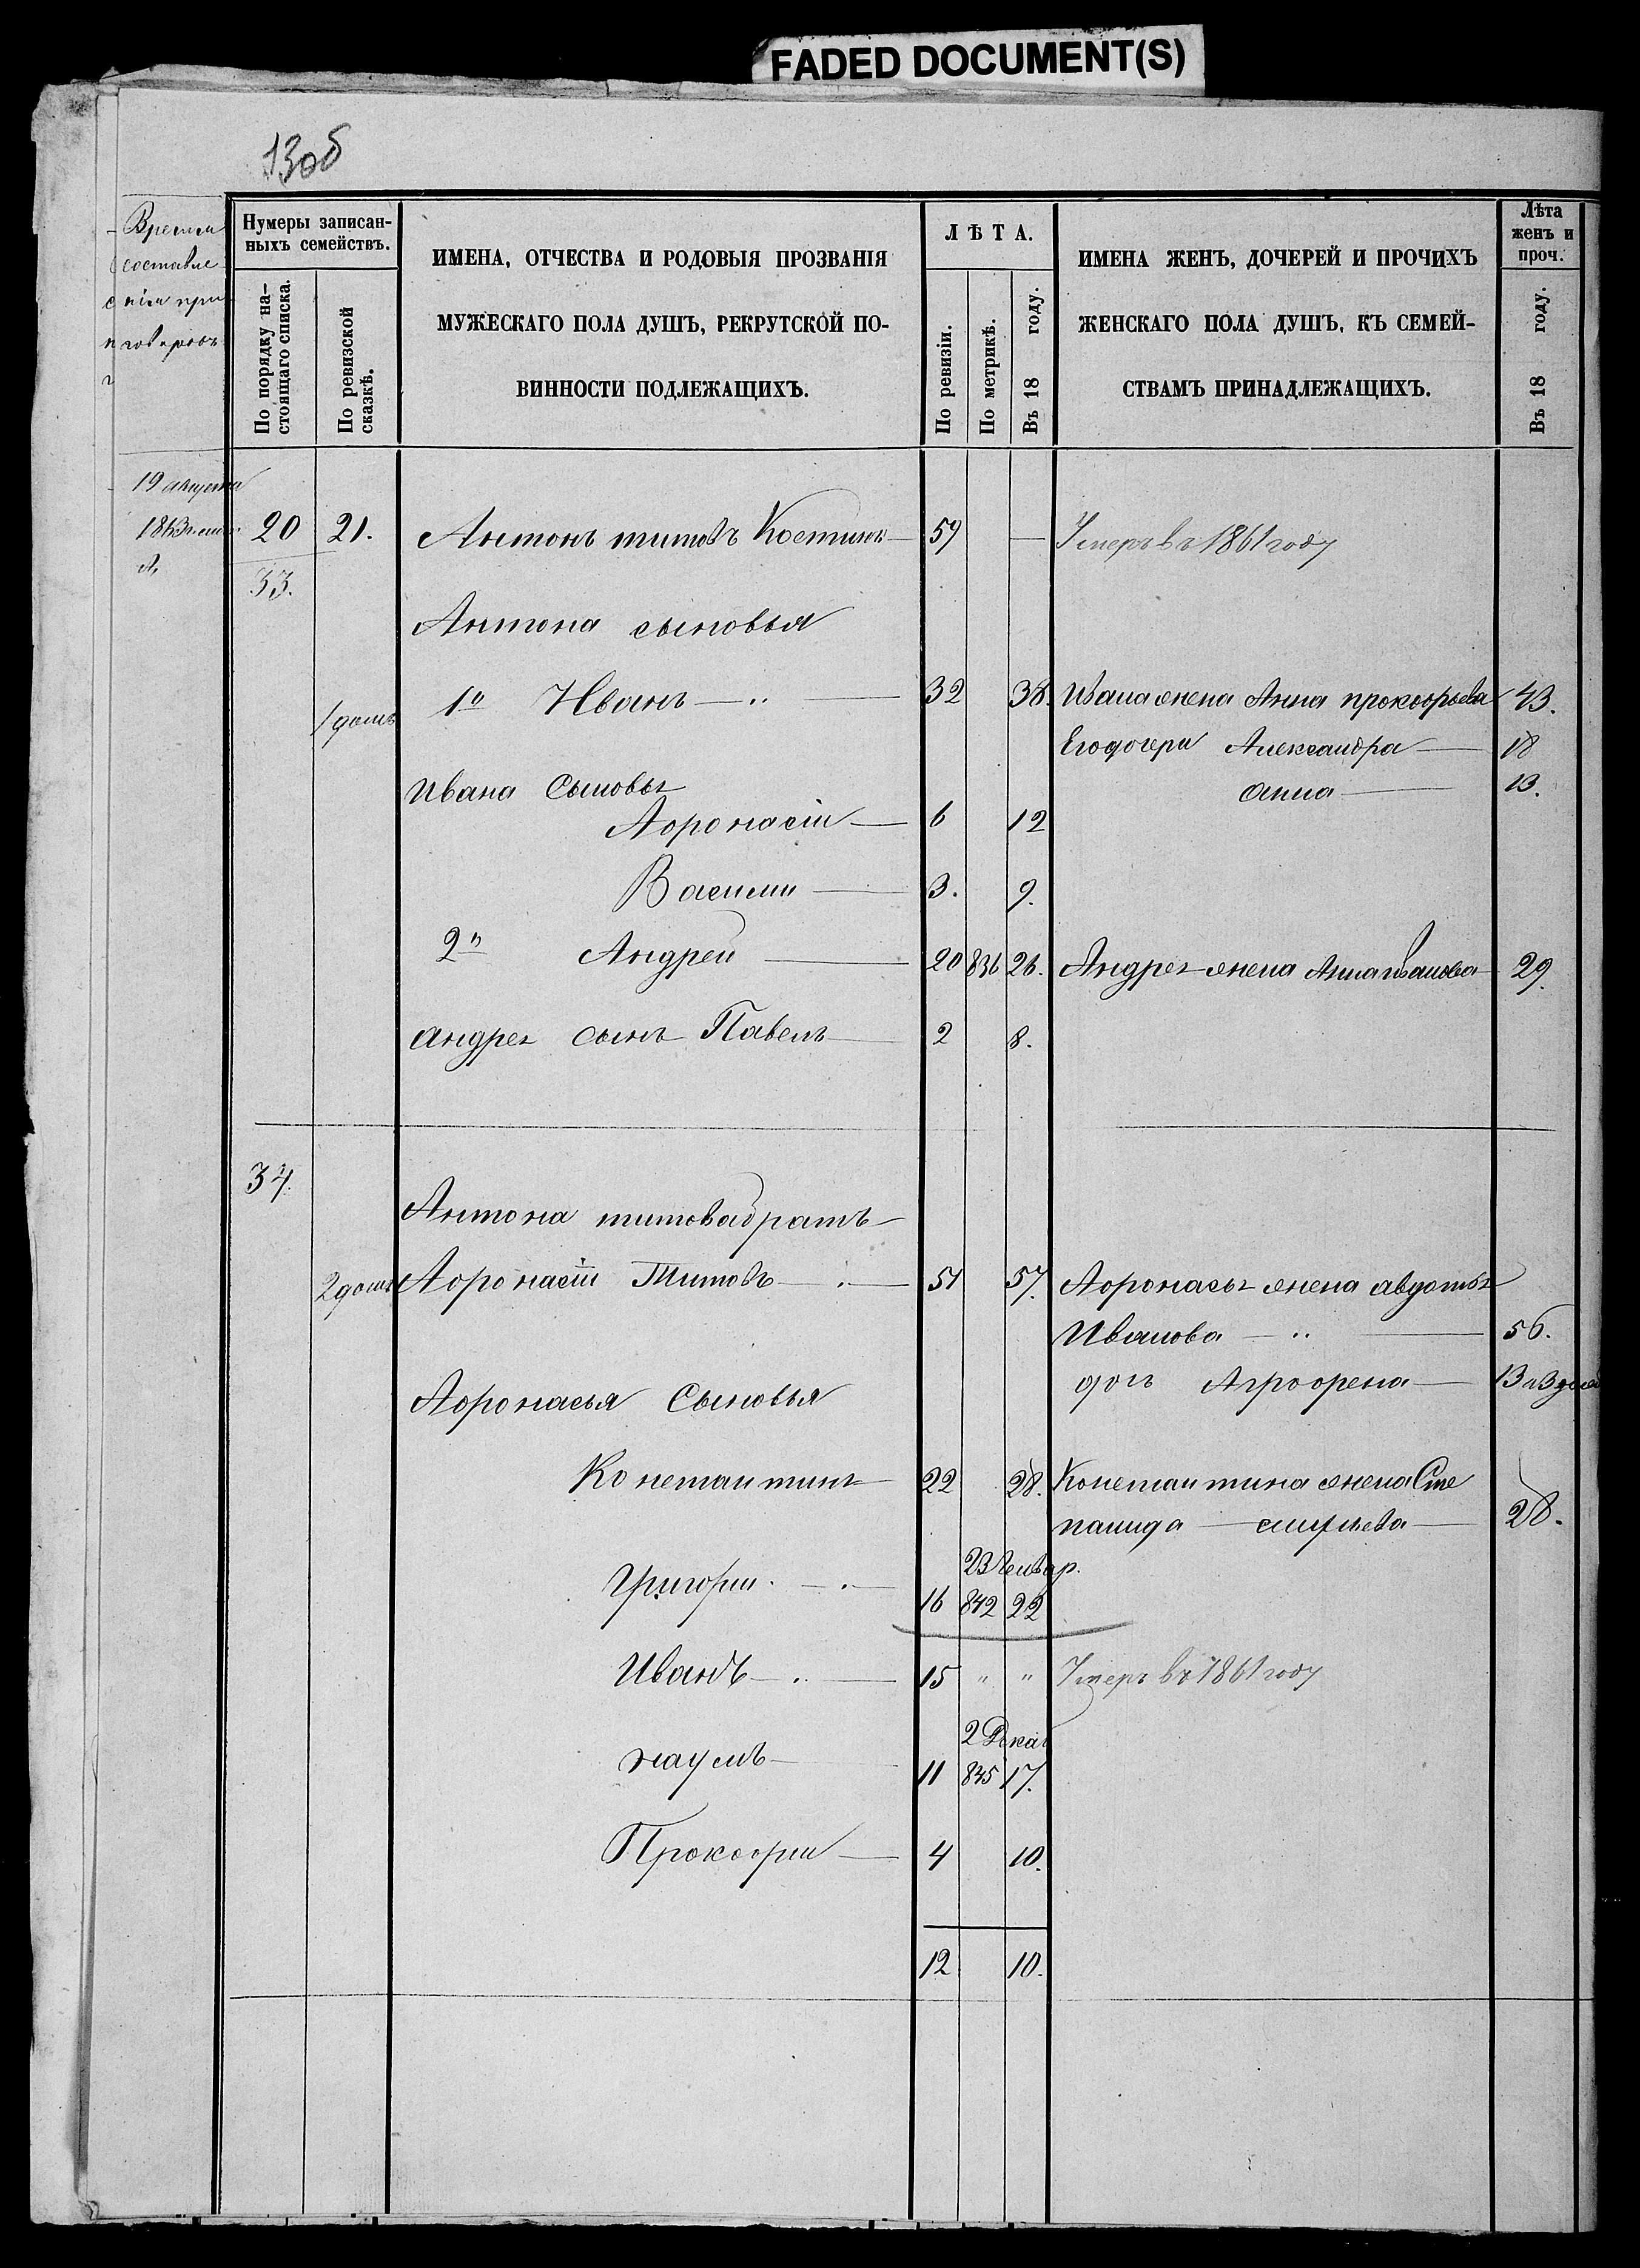 FADED DOCUMENT(S)
13об
Время
составле
нія при
говоровъ
Нумеры записан-
ныхъ семействъ.
По порядку на-
стоящаго списка.
По ревизской
сказкѣ.
ИМЕНА, ОТЧЕСТВА И РОДОВЫЯ ПРОЗВАНІЯ
МУЖЕСКАГО ПОЛА ДУШЪ, РЕКРУТСКОЙ ПО-
ВИННОСТИ ПОДЛЕЖАЩИХЪ.
ЛѢТА.
По ревизіи.
По метрикѣ.
Въ 18 году.
ИМЕНА ЖЕНЪ, ДОЧЕРЕЙ И ПРОЧИХЪ
ЖЕНСКАГО ПОЛА ДУШЪ, КЪ СЕМЕЙ-
СТВАМЪ ПРИНАДЛЕЖАЩИХЪ.
Лѣта
женъ и
проч.
Въ 18 году.
19 августа
20 21. Антонъ титовъ Костинъ 59 — Умеръ въ 1861 году
33.
Антона сыновья
1й Иванъ — " — 32 38. Ивана жена Анна прокофьева 43.
1 домъ
Его дочери Александра — 18
Ивана Сыновья
анна — 13.
Афонасіи — 6 12
Василии — 3. 9.
2й Андреи — 20 836 26. Андрея жена Анна иванова 29.
андрея сынъ Павелъ — 2 8.
34.
Антона титова братъ
2 домъ Афонасіи Титовъ — 51 57. Афонасья жена авдотья
Иванова — " — 56.
доч Агрофена —
Афонасья Сыновья
Констаитинъ 22 28. Констаитина жена Сте
панида — 28.
23 Генвар.
Григории. — 16 842 22
Иванъ — 15 " " Умеръ въ 1861 году
2 Декаб
наумъ — 11 845 17.
Прокофии — 4 10.
12 10.